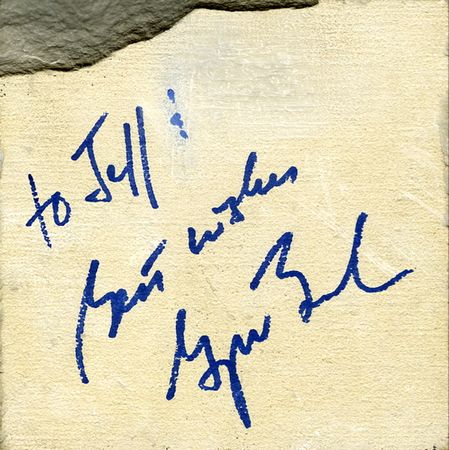 to Jeff:
Best wishes